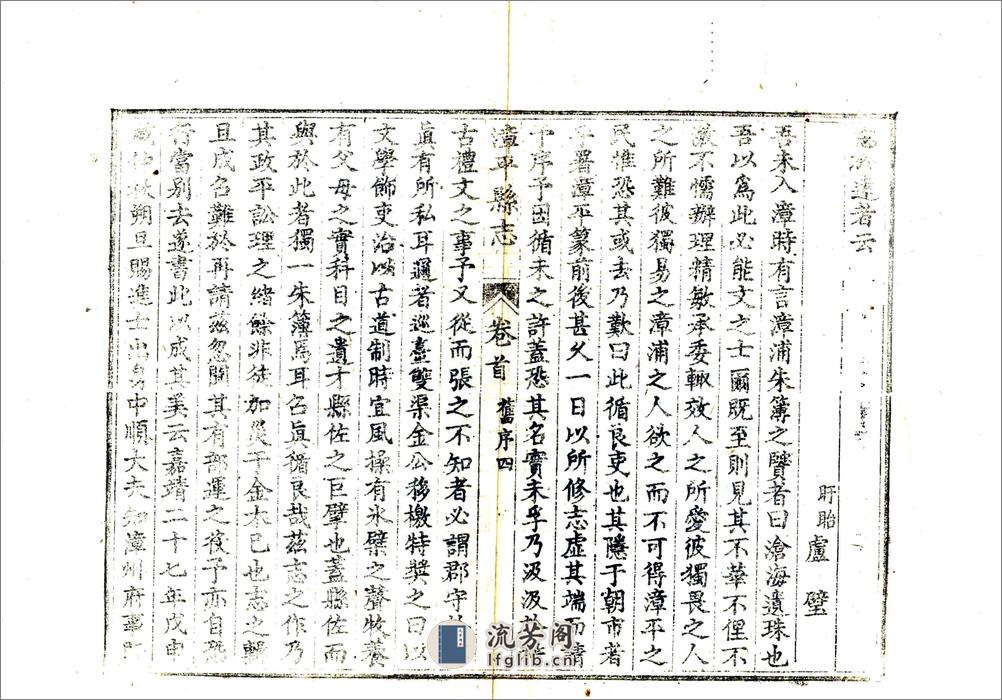 達者云
盱眙盧璧
吾未入漳時有言漳浦朱簿之賢者曰滄海遺珠也
吾以為此必能文之士爾既至則見其不華不俚不
激不懦辦理精敏承委輒效人之所愛彼獨畏之人
之所難彼獨易之漳浦之人欲之而不可得漳平之
民惟恐其或去乃歎曰此循良吏也其隱于朝市者
署漳平篆前後甚久一日以所修志虛其端而請
予序予因循未之許蓋恐其名實未孚乃汲汲於
漳平縣志 卷首 舊序四
古禮文之事予又從而張之不知者必謂郡守
真有所私耳邇者巡臺雙渠金公移檄特獎之曰以
文學飾吏治以古道制時宜風操有氷檗之聲牧養
有父母之實科目之遺才縣佐之巨擘也蓋縣佐而
與於此者獨一朱簿焉耳名真循良哉茲志之作乃
其政平訟理之緒餘非徒加災于金木已也志之輯
且成名難於再請茲忽聞其有部運之役予亦自恐
行當別去遂書此以成其美云嘉靖二十七年戊申
朔旦賜進士出身中順大夫知漳州府事
流芳阁
lfglib.cn